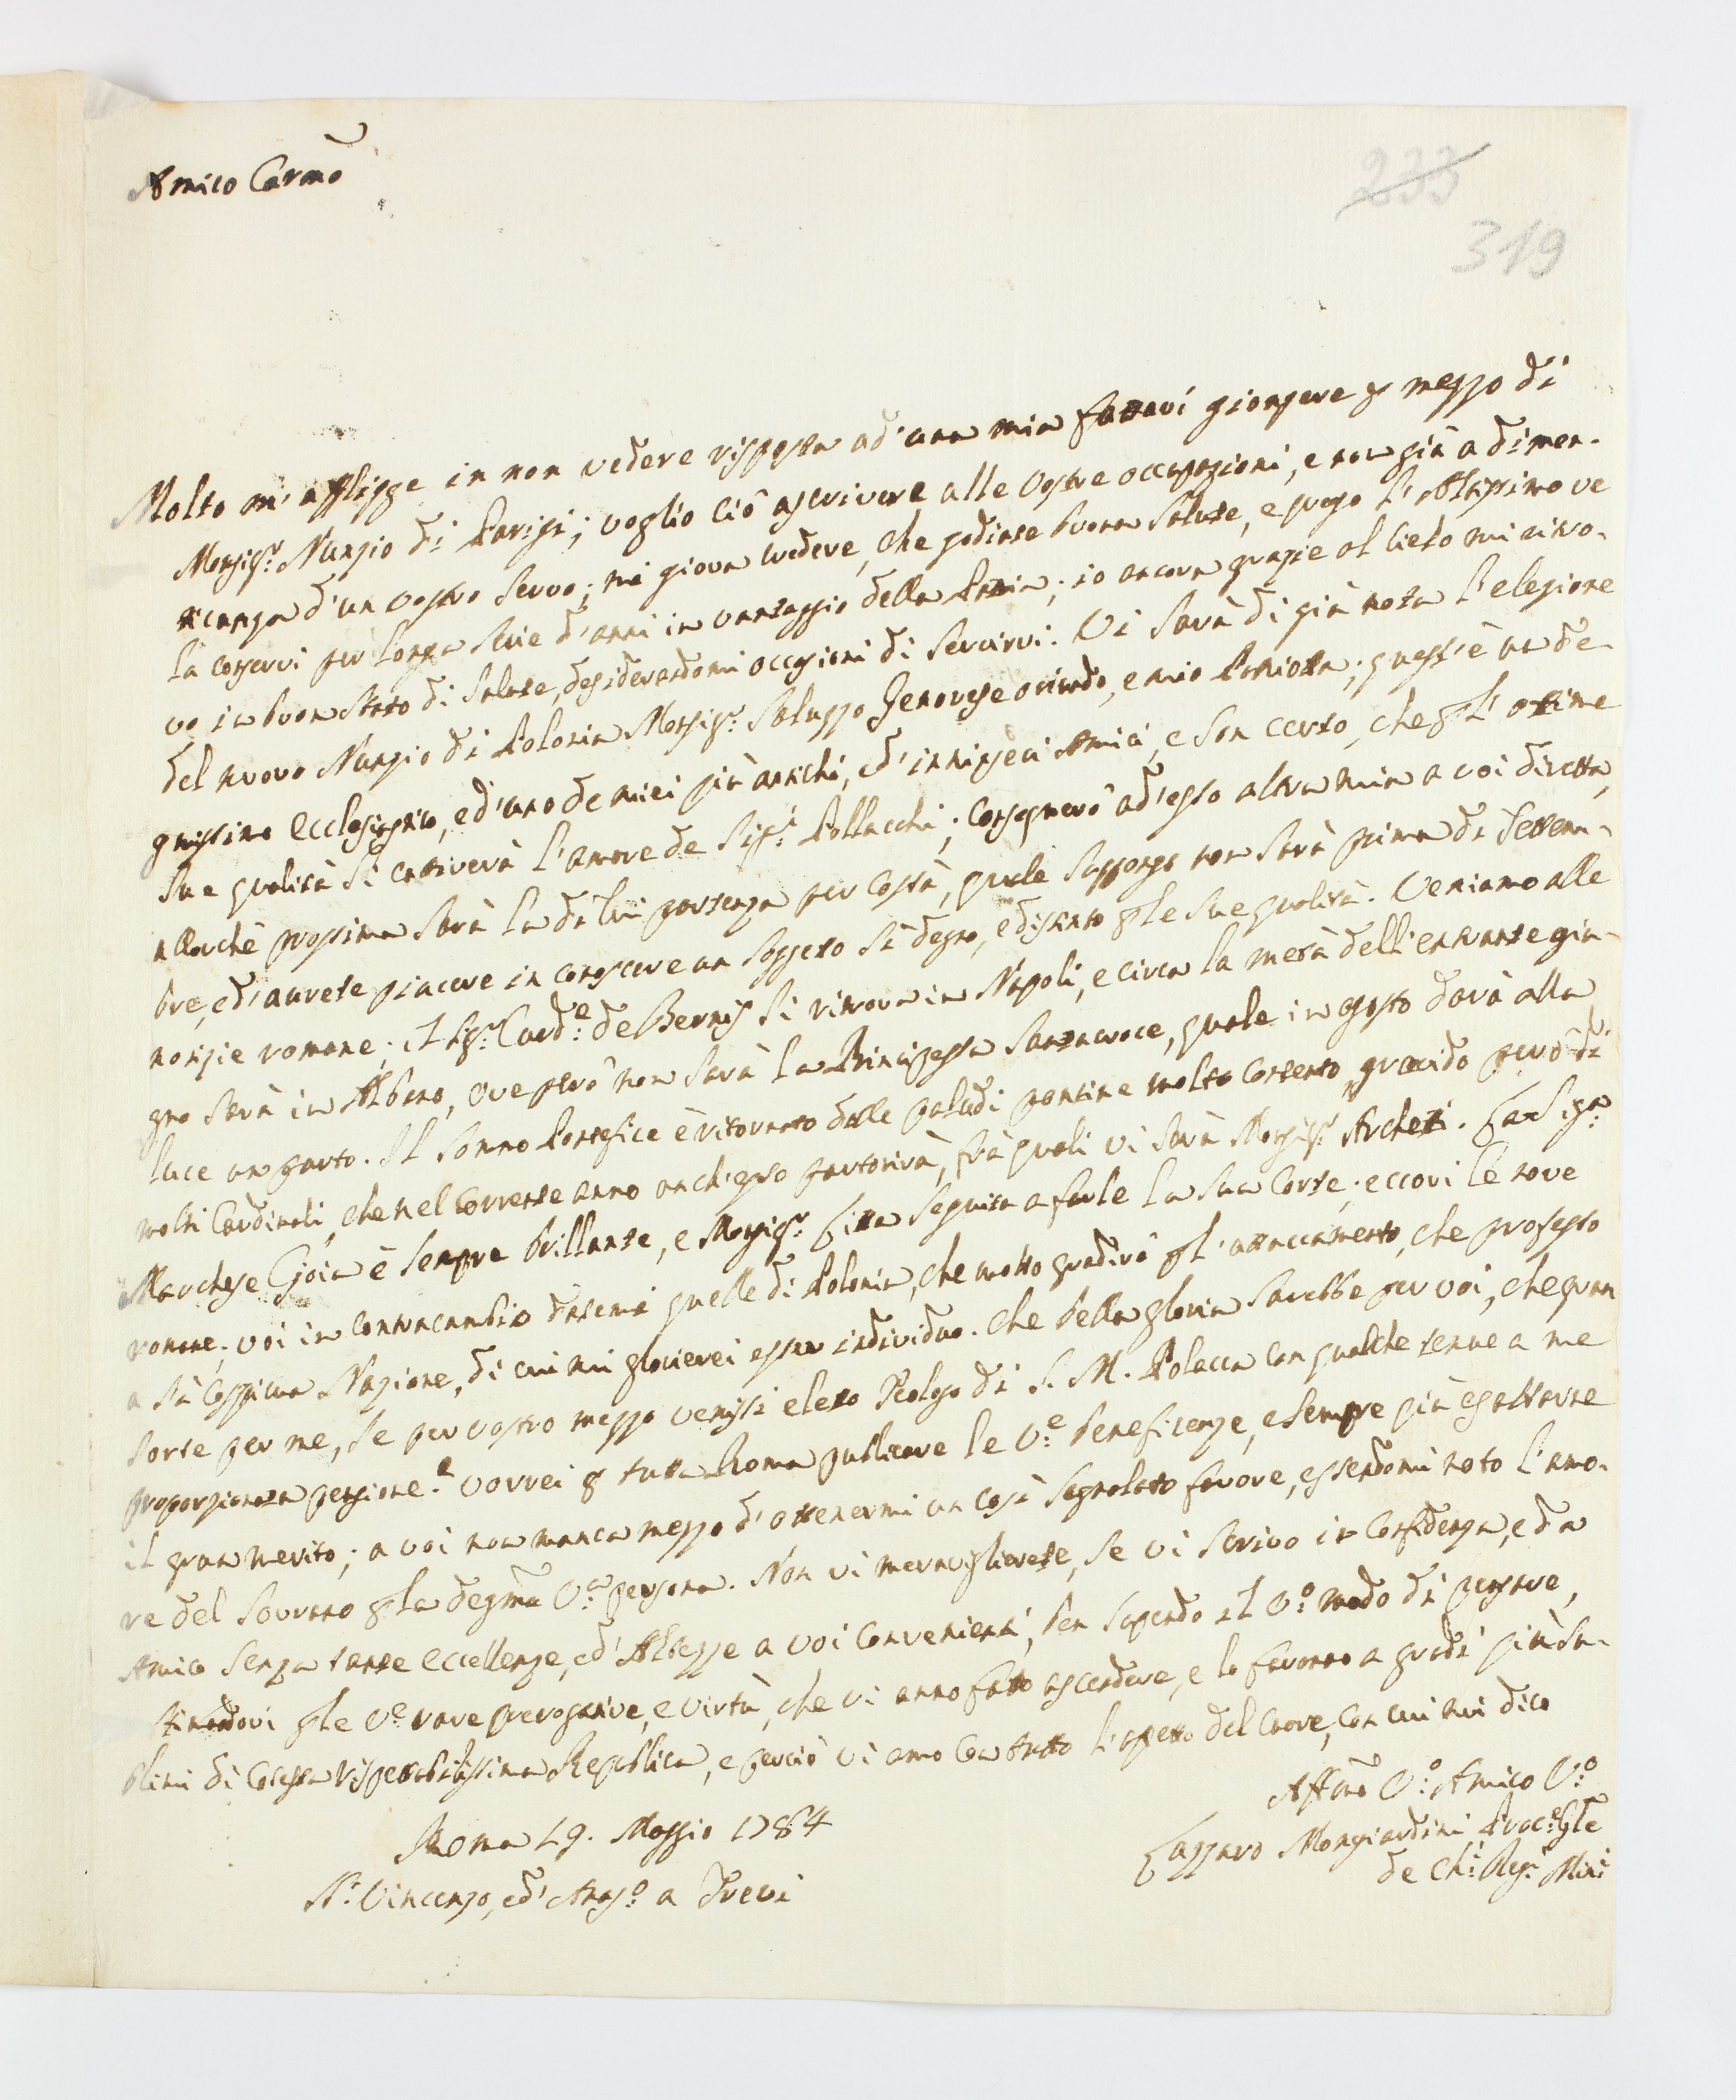 Amico Carmo
233
319
Molto m'affligge in non vedere risposta ad'una mia fattavi giongere p mezzo di
Monsigr. Nunzio di Parigi; voglio ciò ascrivere alle vostre occupazioni, e non già a dimen-
ticanza d'un vostro servo; mi giova credere, che godiate buona salute, e prego l'Altissimo ve
la conservi per longa serie d'anni in vantaggio della Patria; io ancora grazie al Cielo mi ritro-
vo in buon stato di salute, desiderandomi occasioni di servirvi. Vi sarà di già nota l'elezione
del nuovo Nunzio di Polonia Monsigr. Saluzzo Genovese oriundo, e mio Patriota; quest'è un de-
gnissimo Ecclesiastico, ed'uno de miei più antichi, ed'intrinseci Amici, e son certo, che p l'ottime
sue qualità si cattiverà l'amore de Sigri. Pollacchi; consegnerò ad'esso altra mia a voi diretta,
allorchè prossima sarà la di lui partenza per costà, quale suppongo non sarà prima di settem-
bre, ed'avrete piacere in conoscere un soggetto sì degno, e distinto p le sue qualità. Veniamo alle
notizie romane; il Sigr. Carde. de Bernis si ritrova in Napoli, e circa la metà dell'entrante giu-
gno sarà in Albano, ove però non sarà la Principessa Santacroce, quale in agosto darà alla
luce un parto. Il Sommo Pontefice è ritornato dalle paludi pontine molto contento, gravido però di
molti Cardinali, che nel corrente anno anch'esso partorirà, frà quali vi sarà Monsigr. Archetti. La Siga.
Marchese Gioia è sempre brillante, e Monsigr. Litta seguita a farle la sua Corte; eccovi le nove
romane; voi in contracambio datemi quelle di Polonia, che molto gradirò p l'attaccamento, che professo
a sì cospicua Nazione, di cui mi glorierei esser individuo. Che bella gloria sarebbe per voi, che gran
sorte per me, se per vostro mezzo venissi eletto Teologo di S. M. Polacca con qualche tenue a me
proporzionata pensione? Vorrei p tutta Roma publicare le Ve. beneficenze, e sempre più esaltarne
il gran merito; a voi non manca mezzo d'ottenermi un così segnalato favore, essendomi noto l'amo-
re del Sovrano p la degma Va. persona. Non vi meravigliarete, se vi scrivo in confidenza, e da
Amico senza tante eccellenze, ed'Altezze a voi convenienti, ben sapendo il Vo. modo di pensare,
stimandovi p le Ve. rare prerogative, e virtù, che vi anno fatto ascendere, e lo faranno a gradi più su-
blimi di cotesta rispettabilissima Republica, e perciò vi amo con tutto l'affetto del Cuore, con cui mi dico
Affmo Vo. Amico Vo.
Lazzaro Mongiardini Proc. Gle
de Chi. Regi. Mini.
Roma 19. Maggio 1784
SS. Vincenzo, ed'Anaso. a Trevi